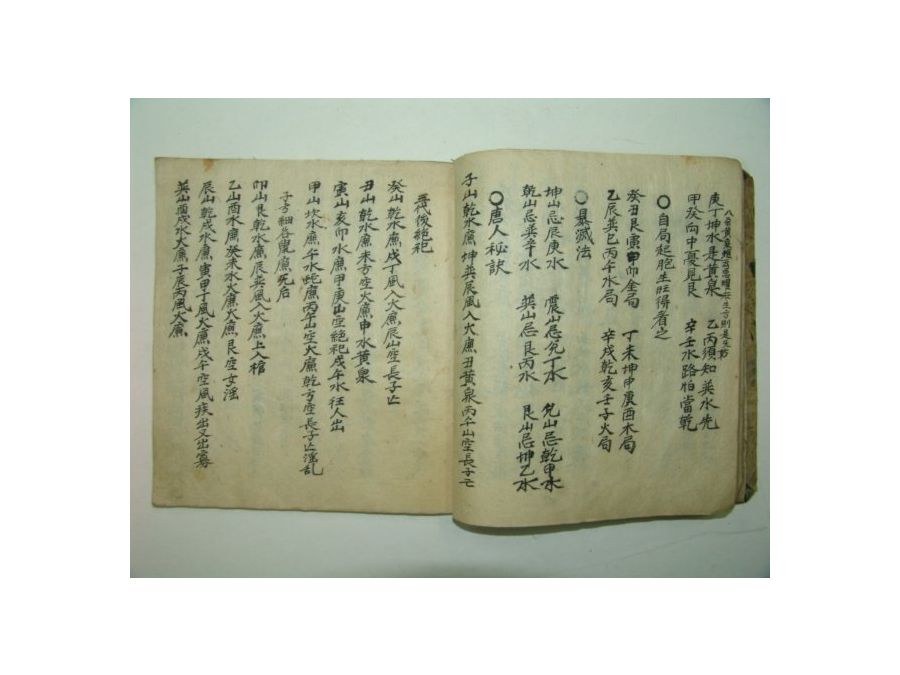 庚丁坤水是黃泉 乙丙須知巽水先
甲癸向中憂見艮 辛壬水路怕當乾
○自局起胞生旺得者之
癸丑艮寅甲卯金局 丁未坤申庚酉木局
乙辰巽巳丙午水局 辛戌乾亥壬子火局
○暴滅法
坤山忌辰庚水 震山忌兌丁水 兌山忌乾甲水
乾山忌巽辛水 巽山忌艮丙水 艮山忌坤乙水
○唐人秘訣
子山乾水廉坤巽辰風入穴廉丑黃泉丙午山空長子亡
三代後絶祀
癸山乾水廉戌丁風入火廉辰山空長子亡
丑山乾水廉未方空火廉申水黃泉
寅山亥卯水廉甲庚山空絶祀戌午水狂人出
甲山坎水廉午水蛇廉丙午山空火廉乾方空長子亡淫乱
卯山艮乾水廉辰巽風入火廉上入棺
乙山酉水廉癸未水火廉火廉艮空女淫
辰山乾戌水廉寅甲丁風火廉戌午空風疾出又出寡
巽山酉戌水火廉子辰丙風火廉